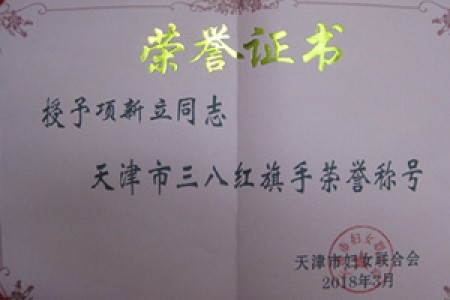 荣誉证书
授予项新立同志
天津市三八红旗手荣誉称号
天津市妇女联合会
2018年3月